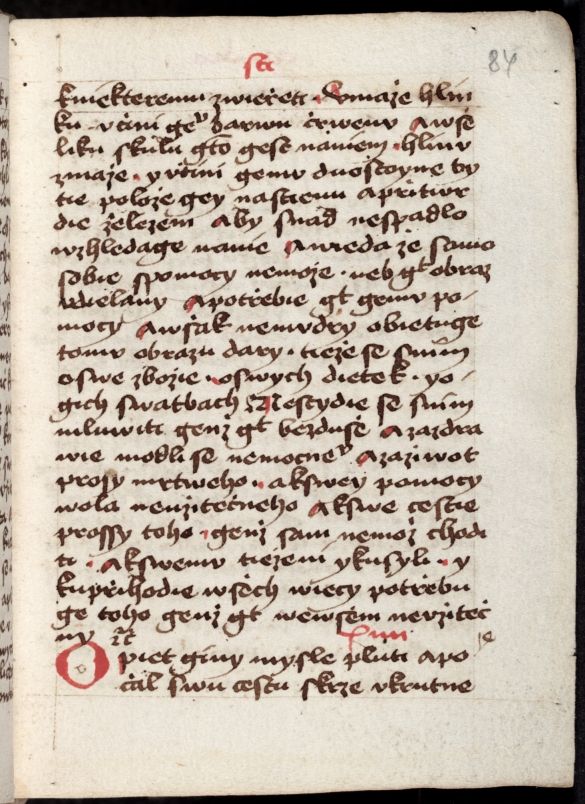 84
kniekteremu zwieřeti · A zmaže hlin
ku · včini geᵘ barwu črwenu A wse
liku skulu gt͞o gest naniem · hlinu
zmaže · y včini gemu duostoyne by
tie polože gey nastienu a pritwr
die železem Aby snad nespadlo
wzhledage nanie A wieda že samo
sobie spomocy nemože · neb gt obraz
vdielany A potřebie gt gemu po-
mocy A wšak nemudry obietuge
tomu obrazu dary · tieže se snim
o swe zbožie · o swych dietek · yo-
gich swatbach Nestydie se snim
mluwiti genž gt bezduse A za zdra
wie modli se nemocneᵒ A za ziwot
prosy mrtweho · A kswey pomocy
wola neuzitečneho A kswe cestie
prossy toho · genž sam nemož chodi
ti · A kswemu tieženi y kusyli · y
kuprihodie wsech wiecy potřebu
ge toho genž gt wewsem neužiteč
ny
Opiet giny mysle pluti a po
čal swu cestu skrze vkrutne